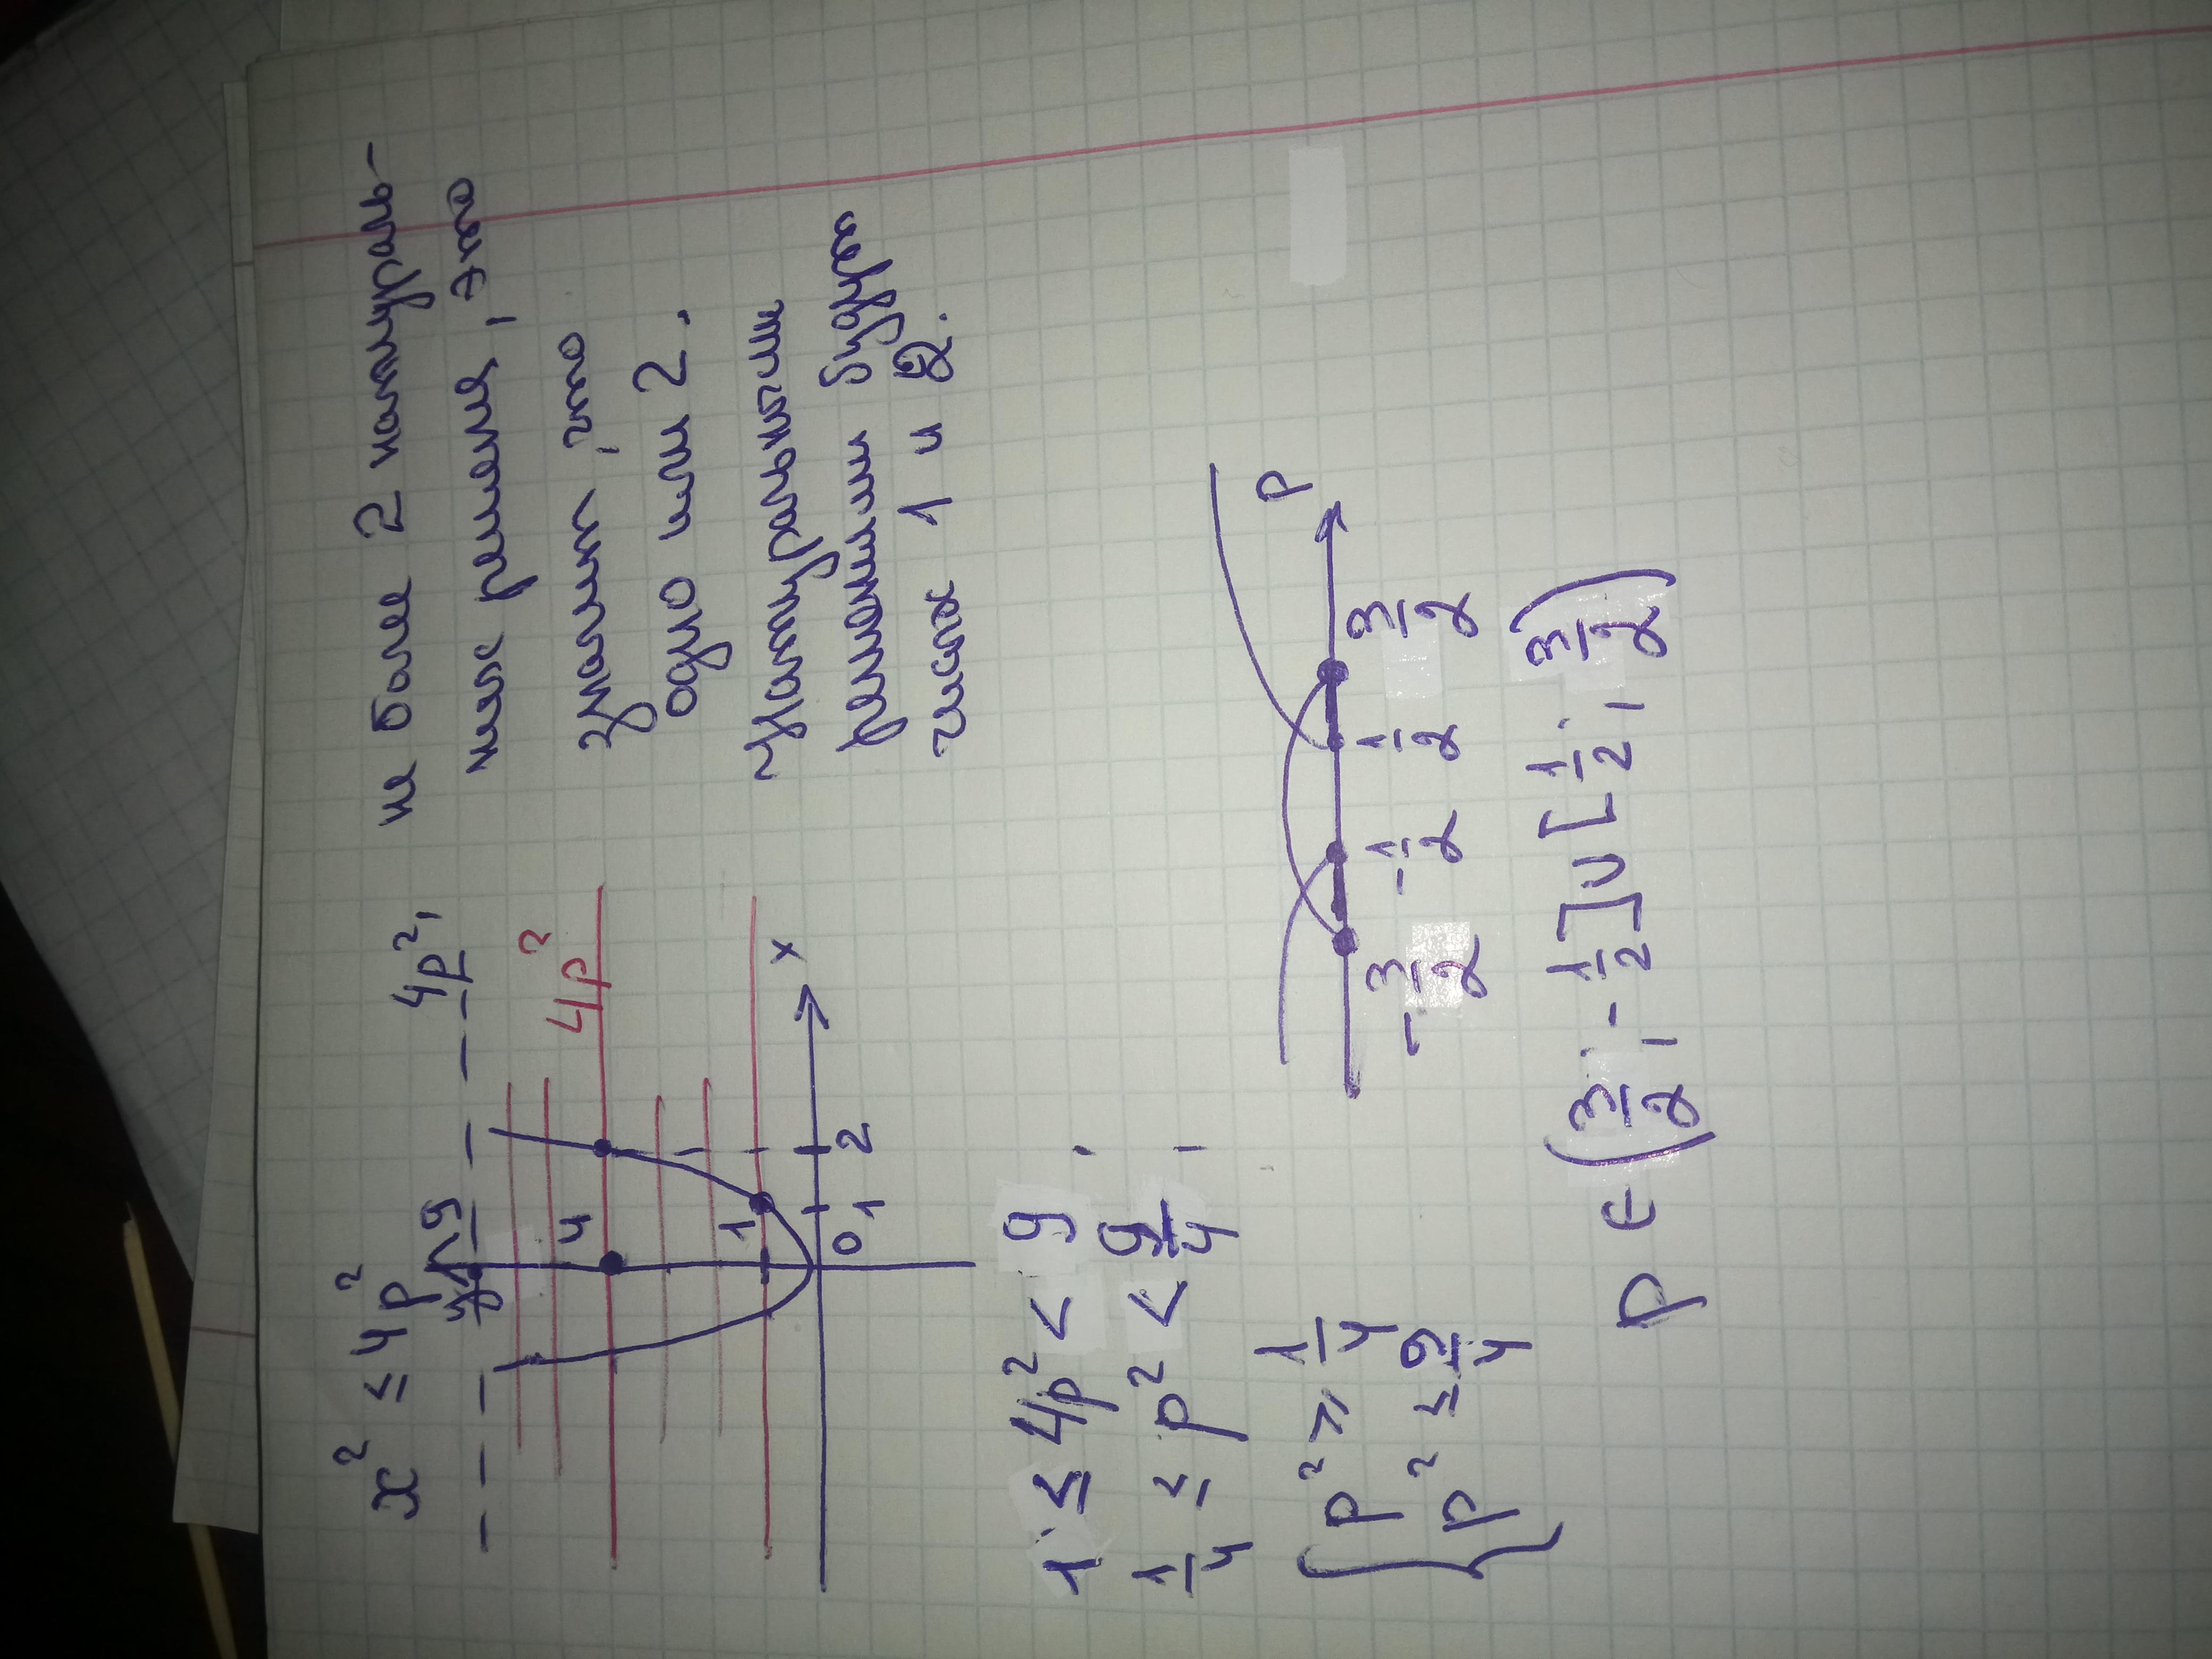 x² ≤ 4p²
4p²,
не более 2 натураль-
ное решения, это
значит, что
одно или 2.
Натуральными
решениями будут
числа 1 и 2.
y
9
4p²
4
1
0
1
2
x
1 ≤ 4p² < 9
1/4 ≤ p² < 9/4
{ p² ⩾ 1/4
p² ≤ 9/4
-3/2
-1/2
1/2
3/2
p
p ∈ (3/2; -1/2] ∪ [1/2; 3/2)